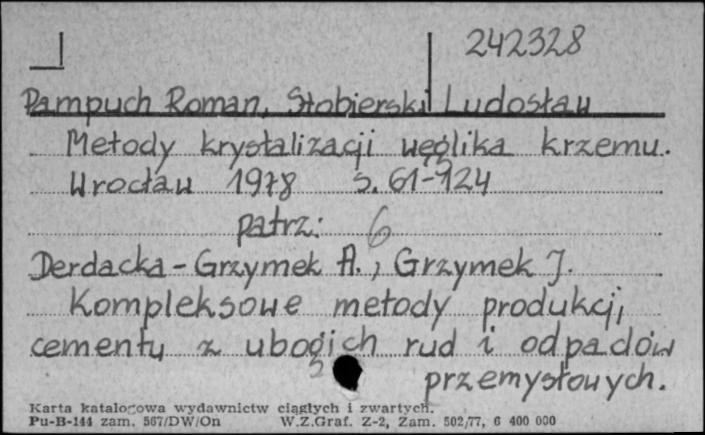 242328
Pampuch Roman, Stobierski Ludosław
Metody krystalizacji węglika krzemu.
Wrocław 1978 s. 61-124
patrz: 6
Derdacka-Grzymek A., Grzymek J.
Kompleksowe metody produkcji
cementu z ubogich rud i odpadów
przemysłowych.
Karta katalogowa wydawnictw ciągłych i zwartych.
Pu-B-144 zam. 567/DW/On W.Z.Graf. Z-2, Zam. 502/77, 6 400 000